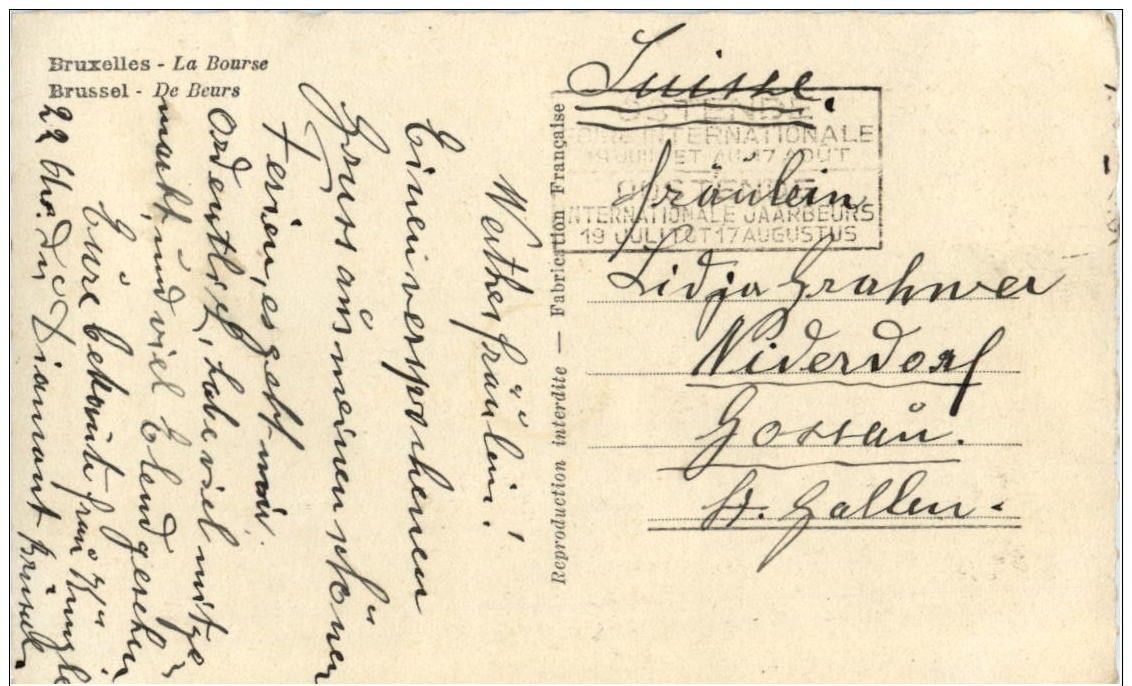 Bruxelles - La Bourse
Brussel - De Beurs
Werthes fräulein!
Einen versprochenen
Gruss aus meinen schönen
Ferien, es geht mir
Ordentlich, habe viel mitge
macht, und viel Elend gesehen
Eüre bekannte frau
22 Chs. Du Diamant Brüssel
Reproduction interdite — Fabrication Française
OSTENDE
FOIRE INTERNATIONALE
19 JUILLET AU 17 AOÛT
OOSTENDE
INTERNATIONALE JAARBEURS
19 JULI TOT 17 AUGUSTUS
Suisse.
Fräulein
Lidja Grahwer
Niderdorf
Gossau.
St. Gallen.